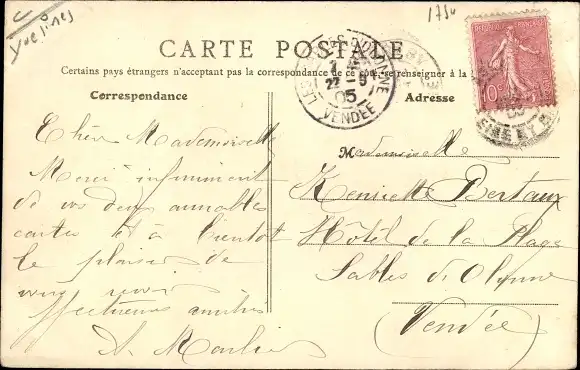 Yvelines
1734
CARTE POSTALE
Certains pays étrangers n'acceptant pas la correspondance de ce côté, se renseigner à la
Correspondance
Adresse
Chère Mademoiselle
Merci infiniment
de vos deux aimables
cartes et à bientôt
le plaisir de
vous revoir
affectueuses amitiés
Mademoiselle
Henriette Bertaux
Hôtel de la Plage
Sables d'Olonne
(Vendée)
LES SABLES D'OLONNE
22 -9
05
VENDÉE
REPUBLIQUE FRANÇAISE
10